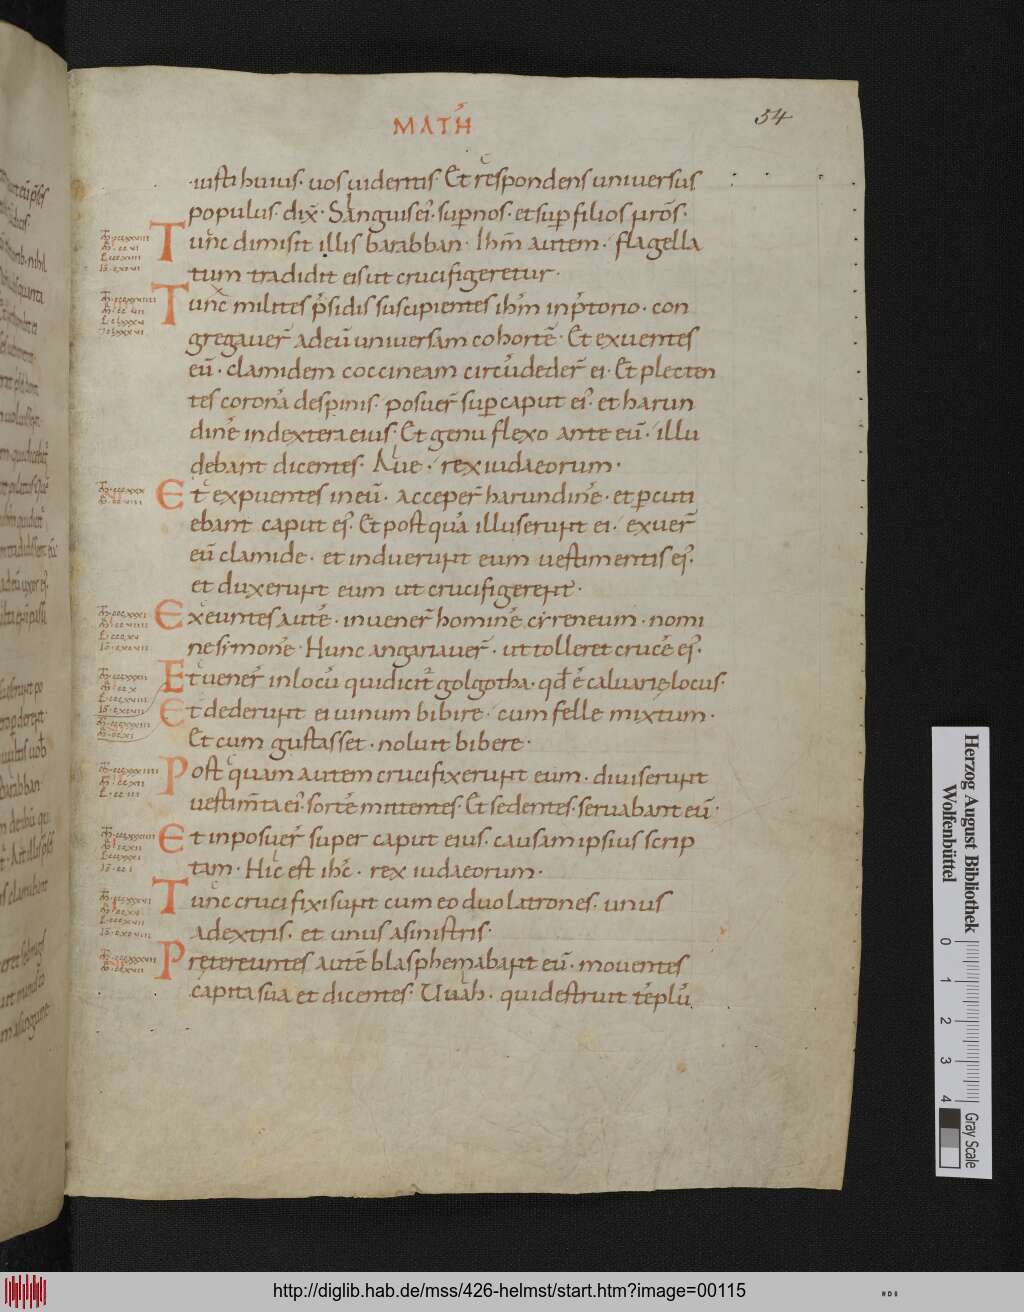 MATH
54
iusti huius. uos uideritis. Et respondens uniuersus
populus. dix̄. Sanguis ei᾽. sup nos. et sup filios nr̄os.
Tunc dimisit illis barabban. Ihm̄ autem. flagella
tum tradidit eis ut crucifigeretur.
Tunc milites p̄sidis suscipientes ihm̄ in p̄torio. con
gregauer̄ ad eū uniuersam cohortē. Et exuentes
eū. clamidem coccineam circūdeder̄ ei. Et plecten
tes coronā de spinis. posuer̄ sup caput ei᾽. et harun
dinē in dextera eius. Et genu flexo ante eū. illu
debant dicentes. Aue. rex iudaeorum.
Et expuentes in eū. acceper̄ harundinē. et pcuti
ebant caput ei᾽. Et postquā illuserunt ei. exuer̄
eū clamide. et induerunt eum uestimentis ei᾽.
et duxerunt eum ut crucifigerent.
Exeuntes autē. inuener̄ hominē cyreneum. nomi
ne simonē. Hunc angariauer̄. ut tolleret crucē ei᾽.
Et uener̄ in locū qui dicit̄ golgotha. qd̄ ē caluarię locus.
Et dederunt ei uinum bibere. cum felle mixtum.
Et cum gustasset. noluit bibere.
Postquam autem crucifixerunt eum. diuiserunt
uestim̄ta ei᾽. sortē mittentes. Et sedentes. seruabant eū.
Et inposuer̄ super caput eius. causam ipsius scrip
tam. Hic est ihc̄. rex iudaeorum.
Tunc crucifixi sunt cum eo duo latrones. unus
a dextris. et unus a sinistris.
Prętereuntes autē blasphemabant eū. mouentes
capita sua et dicentes. Uuah. qui destruit tēplū
Herzog August Bibliothek
Wolfenbüttel
0 1 2 3 4
Gray Scale
http://diglib.hab.de/mss/426-helmst/start.htm?image=00115